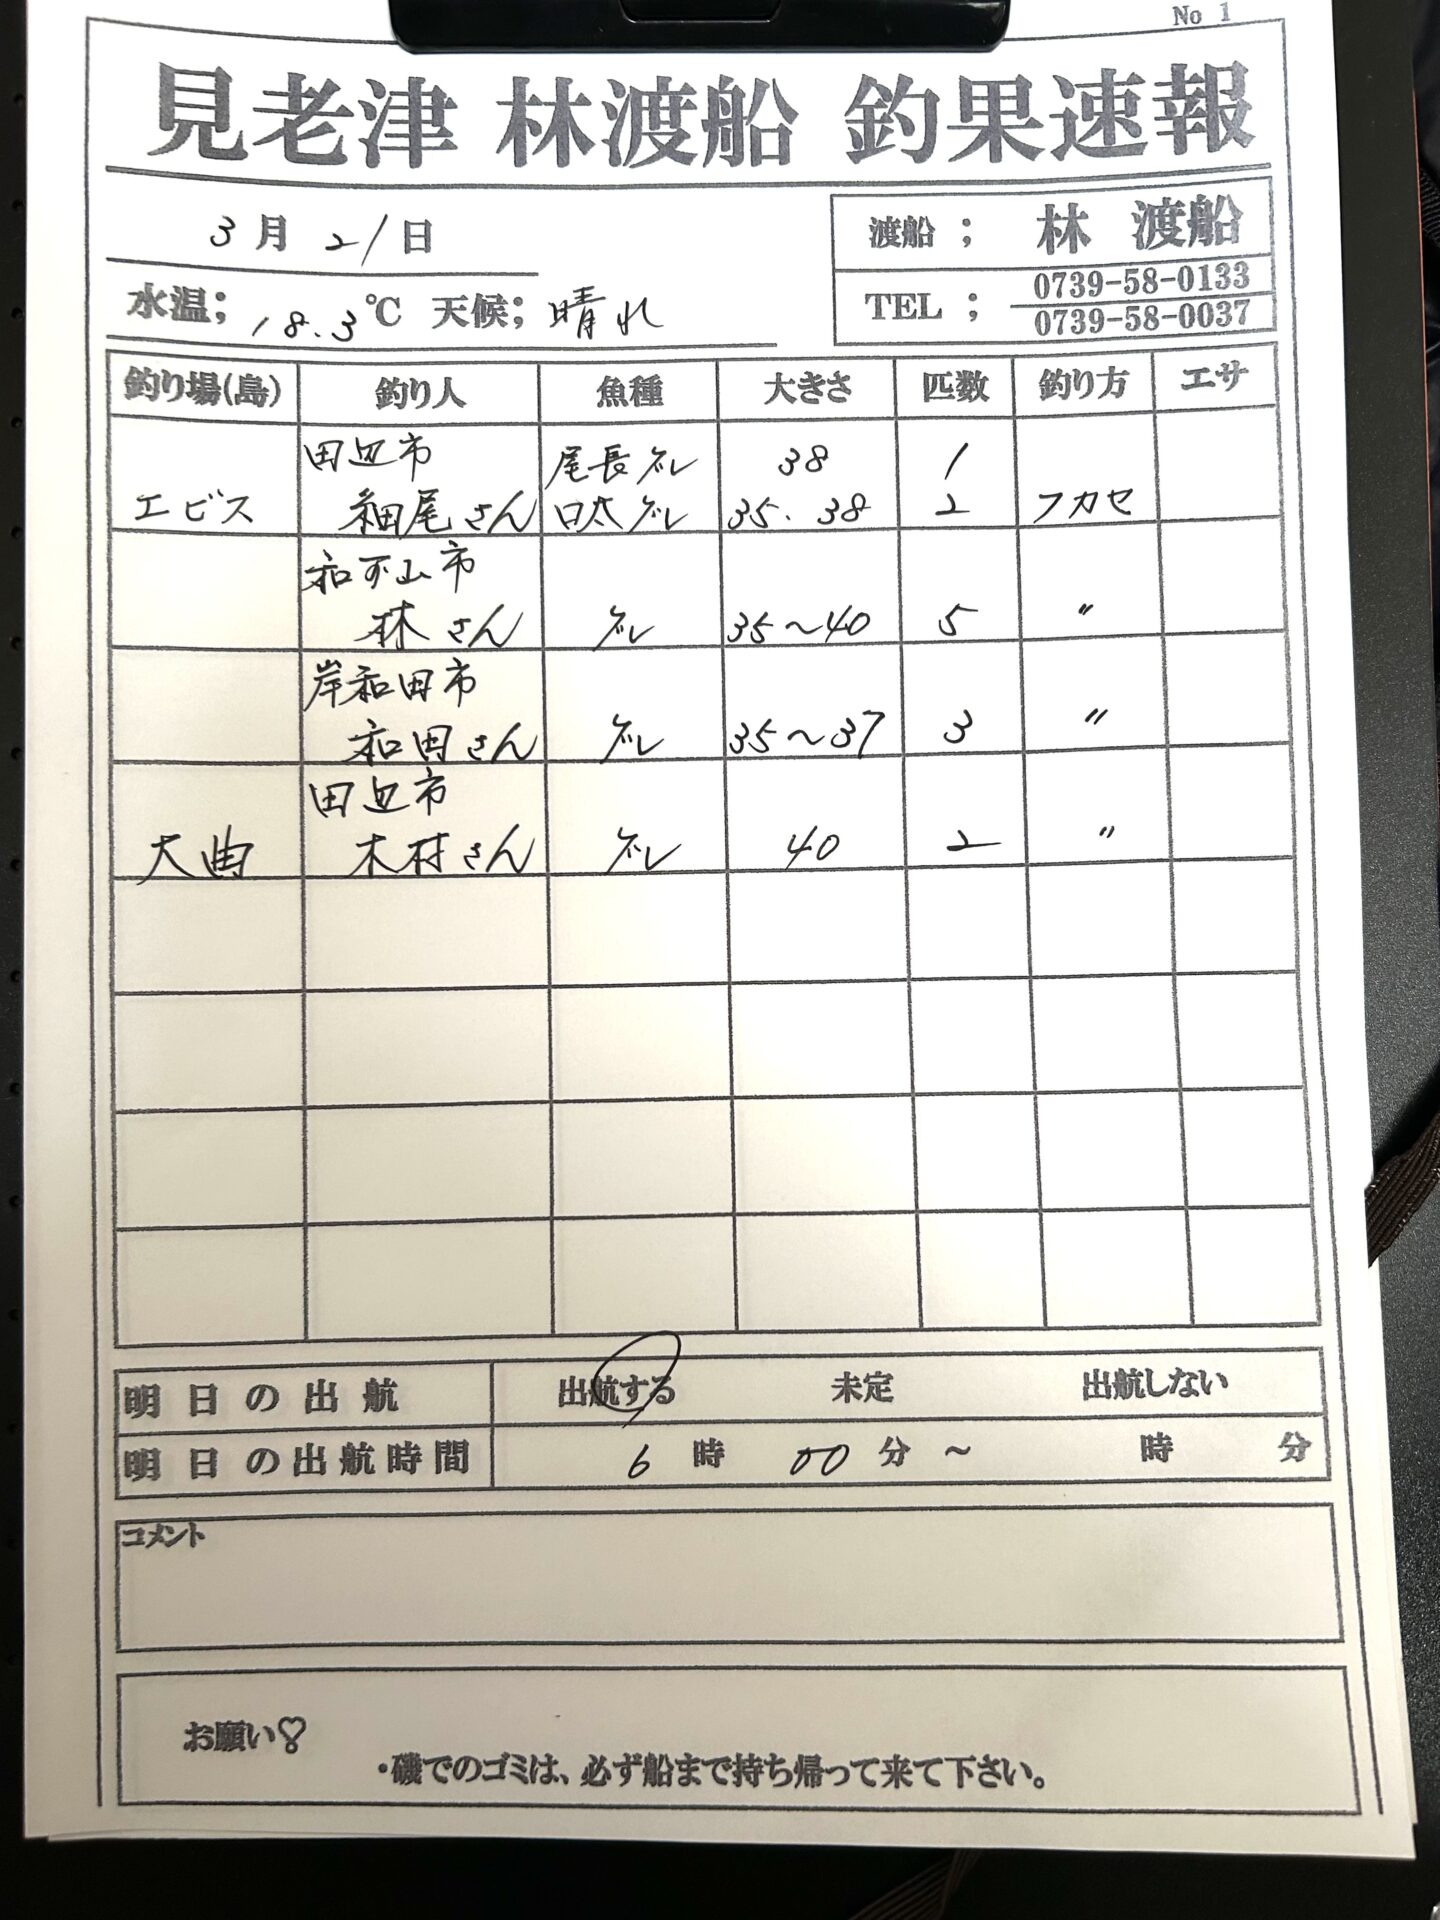 No 1
見老津 林渡船 釣果速報
3月21日
渡船 ; 林 渡船
水温; 18.3℃ 天候; 晴れ
TEL ; 0739-58-0133
0739-58-0037
釣り場(島) 釣り人 魚種 大きさ 匹数 釣り方 エサ
田辺市 尾長グレ 38 1
エビス 細尾さん 口太グレ 35.38 2 フカセ
和歌山市
林さん グレ 35〜40 5 〃
岸和田市
和田さん グレ 35〜37 3 〃
田辺市
大曲 木村さん グレ 40 2 〃
明日の出航 出航する 未定 出航しない
明日の出航時間 6時00分〜 時 分
コメント
お願い♡
・磯でのゴミは、必ず船まで持ち帰って来て下さい。